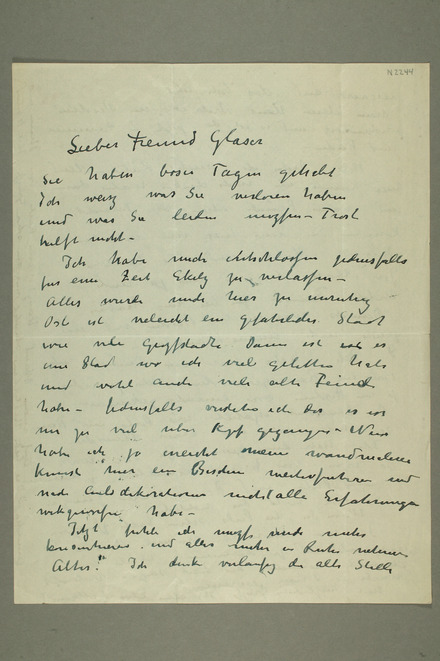 N 2244
Lieber Freund Glaser
Sie haben böser Tagen gehabt
Ich weisz was Sie verloren haben
und was Sie leiden muszsen – Trost
hilft nicht –
Ich habe mich entschlossen jedenfalls
für eine Zeit Ekely zu verlassen –
Alles wurde mich hier zu unruhig
Oslo ist vieleicht ein gefährliches Stadt
wie viele Groszstädte Dann ist es
eine Stadt wo ich viel gelitten habe
und wohl auch viele alte Feinde
habe – Jedenfalls verstehe ich das es war
mir zu viel über Kopf gegangen –
habe ich ja meine
Kunst hier ein Bischen und
nach nicht alle Erfahrungen
habe –
Jetzt fühle ich musz mich
konsentrieren und alles mehr in Ruhe nehmen
Alter! Ich denke vorläufig die alte Stelle